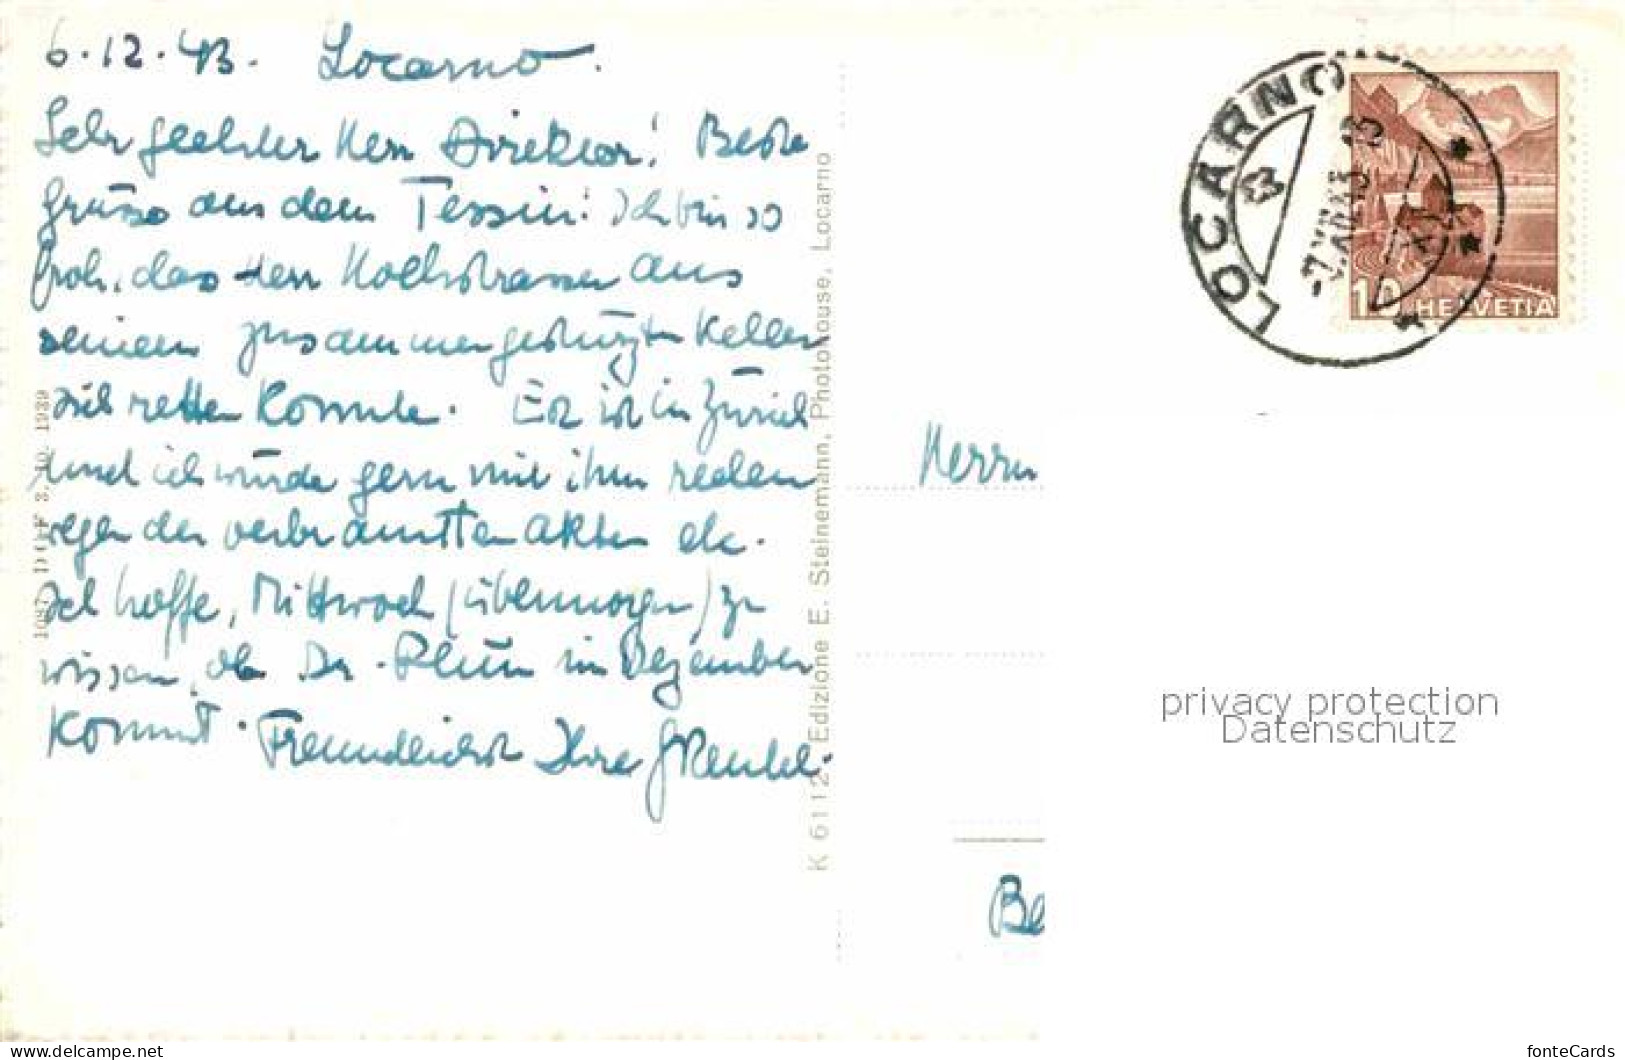 6.12.43. Locarno.
Sehr geehrter Herr Direktor! Beste
Grüsse aus dem Tessin! Ich bin so
froh, das Herr Hochstrasser aus
seinem zusammengestürzten Keller
sich retten konnte. Er ist in Zürich
und ich würde gern mit ihm reden
wegen der verbrannten Akten etc.
Ich hoffe, Mittwoch (übermorgen) zu
wissen, ob Dr. im Dezember
kommt. Freundlichst Ihre
1087 D C & F 3. 10. 1939
K 6112 Edizione E. Steinemann, Photohouse, Locarno
LOCARNO
-7.XII.43
HELVETIA
10
Herrn
Be
privacy protection
Datenschutz
delcampe.net
fonteCards